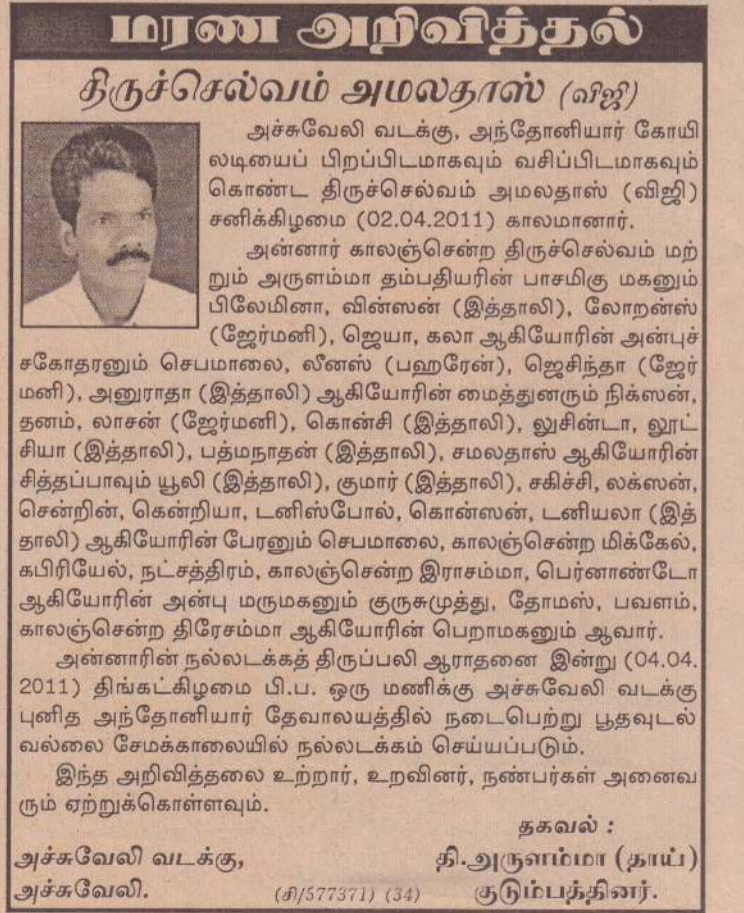 மரண அறிவித்தல்
திருச்செல்வம் அமலதாஸ் (விஜி)
அச்சுவேலி வடக்கு, அந்தோனியார் கோயி
லடியைப் பிறப்பிடமாகவும் வசிப்பிடமாகவும்
கொண்ட திருச்செல்வம் அமலதாஸ் (விஜி)
சனிக்கிழமை (02.04.2011) காலமானார்.
அன்னார் காலஞ்சென்ற திருச்செல்வம் மற்
றும் அருளம்மா தம்பதியரின் பாசமிகு மகனும்
பிலேமினா, வின்ஸன் (இத்தாலி), லோறன்ஸ்
(ஜேர்மனி), ஜெயா, கலா ஆகியோரின் அன்புச்
சகோதரனும் செபமாலை, லீனஸ் (பஹரேன்), ஜெசிந்தா (ஜேர்
மனி), அனுராதா (இத்தாலி) ஆகியோரின் மைத்துனரும் நிக்ஸன்,
தனம், லாசன் (ஜேர்மனி), கொன்சி (இத்தாலி), லுசின்டா, லூட்
சியா (இத்தாலி), பத்மநாதன் (இத்தாலி), சமலதாஸ் ஆகியோரின்
சித்தப்பாவும் யூலி (இத்தாலி), குமார் (இத்தாலி), சகிச்சி, லக்ஸன்,
சென்றின், கென்றியா, டனிஸ்போல், கொன்ஸன், டனியலா (இத்
தாலி) ஆகியோரின் பேரனும் செபமாலை, காலஞ்சென்ற மிக்கேல்,
கபிரியேல், நட்சத்திரம், காலஞ்சென்ற இராசம்மா, பெர்னாண்டோ
ஆகியோரின் அன்பு மருமகனும் குருசுமுத்து, தோமஸ், பவளம்,
காலஞ்சென்ற திரேசம்மா ஆகியோரின் பெறாமகனும் ஆவார்.
அன்னாரின் நல்லடக்கத் திருப்பலி ஆராதனை இன்று (04.04.
2011) திங்கட்கிழமை பி.ப. ஒரு மணிக்கு அச்சுவேலி வடக்கு
புனித அந்தோனியார் தேவாலயத்தில் நடைபெற்று பூதவுடல்
வல்லை சேமக்காலையில் நல்லடக்கம் செய்யப்படும்.
இந்த அறிவித்தலை உற்றார், உறவினர், நண்பர்கள் அனைவ
ரும் ஏற்றுக்கொள்ளவும்.
தகவல் :
அச்சுவேலி வடக்கு, தி.அருளம்மா (தாய்)
அச்சுவேலி. (சி/577371) (34) குடும்பத்தினர்.